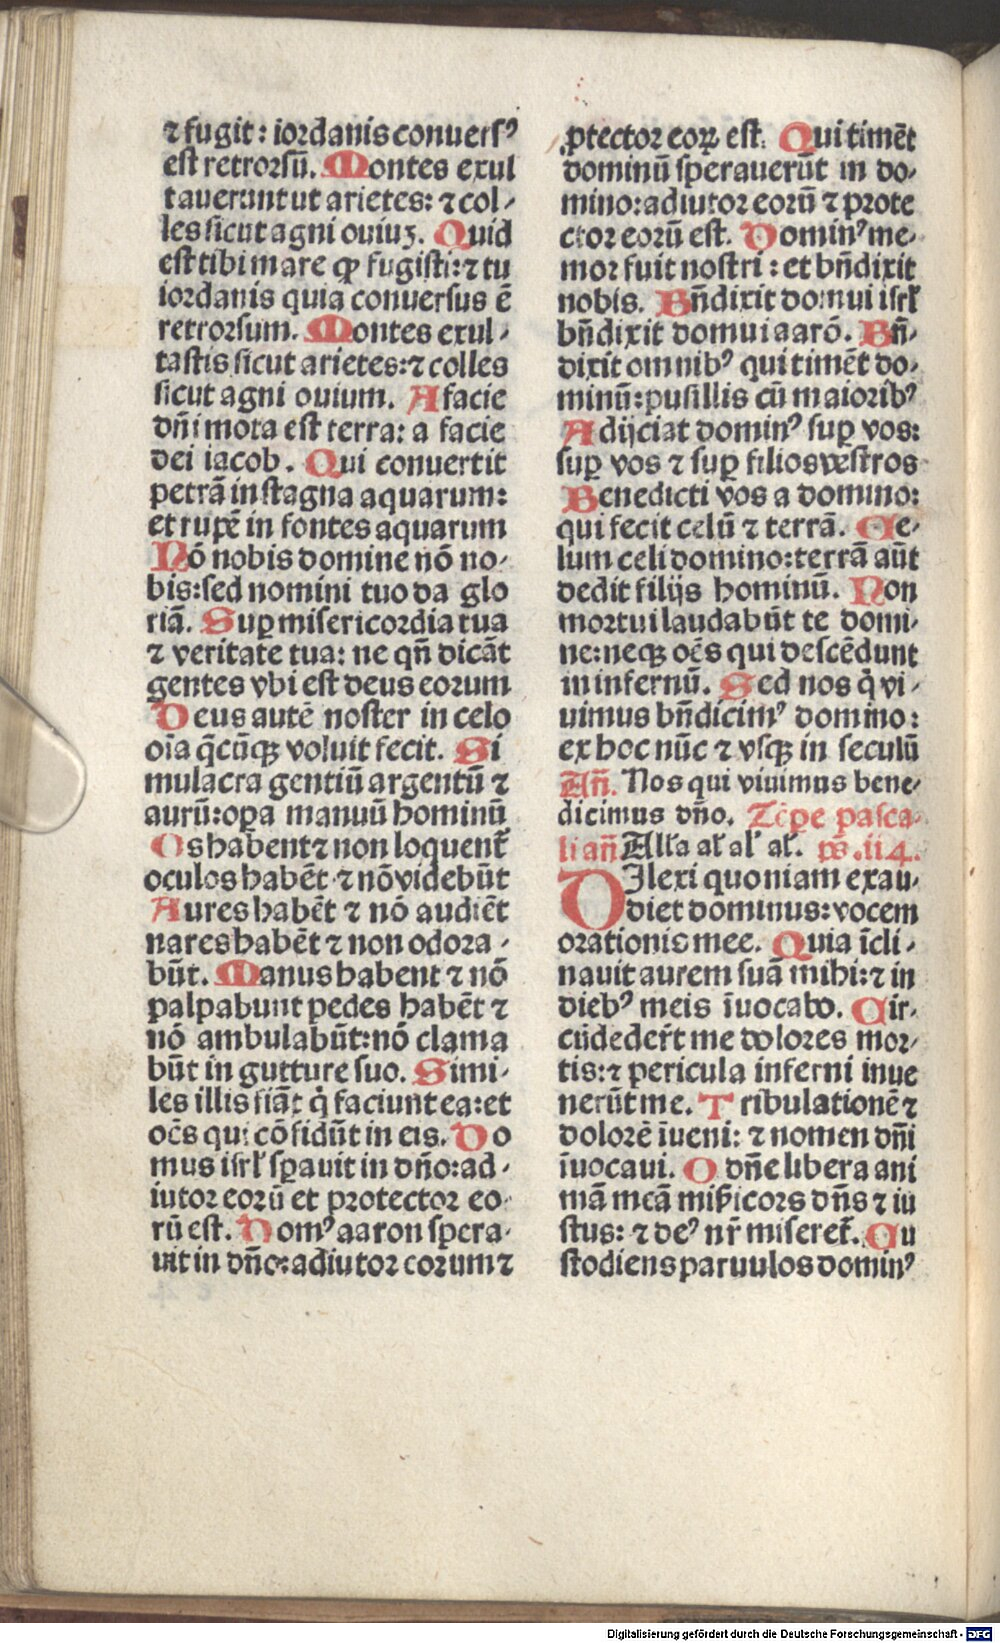 ⁊ fugit: iordanis conuersꝰ
est retrorsū. Montes exul
tauerunt ut arietes: ⁊ col-
les sicut agni ouiuꝫ. Quid
est tibi mare ꝙ fugisti: ⁊ tu
iordanis quia conuersus ē
retrorsum. Montes exul-
tastis sicut arietes: ⁊ colles
sicut agni ouium. A facie
dn̄i mota est terra: a facie
dei iacob. Qui conuertit
petrā in stagna aquarum:
et rupē in fontes aquarum
Nō nobis domine nō no-
bis: sed nomini tuo da glo
riā. Suꝑ misericordia tua
⁊ veritate tua: ne qn̄ dicāt
gentes vbi est deus eorum
Deus autē noster in celo
oīa q̄cūqꝫ voluit fecit. Si
mulacra gentiū argentū ⁊
aurū: oꝑa manuū hominū
Os habent ⁊ non loquent̄
oculos habēt ⁊ nō videbūt
Aures habēt ⁊ nō audiēt
nares habēt ⁊ non odora-
būt. Manus habent ⁊ nō
palpabunt pedes habēt ⁊
nō ambulabūt: nō clama
būt in gutture suo. Simi-
les illis fiāt q̇ faciunt ea: et
oēs qui cōfidūt in eis. Do
mus isrl̄ sꝑauit in dn̄o: ad-
iutor eorū et protector eo-
rū est. Domꝰ aaron spera-
uit in dn̄o: adiutor eorum ⁊
ꝓtector eoꝝ est. Qui timēt
dominū sperauerūt in do-
mino: adiutor eorū ⁊ prote
ctor eorū est. Dominꝰ me-
mor fuit nostri: et bn̄dixit
nobis. Bn̄dixit domui isrl̄
bn̄dixit domui aarō. Bn̄-
dixit omnibꝰ qui timēt do-
minū: pusillis cū maioribꝰ
Adijciat dominꝰ suꝑ vos:
suꝑ vos ⁊ suꝑ filios vestros
Benedicti vos a domino:
qui fecit celū ⁊ terrā. Ce-
lum celi domino: terrā aūt
dedit filijs hominū. Non
mortui laudabūt te domi-
ne: neqꝫ oēs qui descēdunt
in infernū. Sed nos q̇ vi-
uimus bn̄dicimꝰ domino:
ex hoc nūc ⁊ vsqꝫ in seculū
An̄. Nos qui viuimus bene-
dicimus dn̄o. Tēꝑe pasca-
li an̄ All'a al' al' al'. ps̄. 114.
DIlexi quoniam exau-
diet dominus: vocem
orationis mee. Quia īcli-
nauit aurem suā mihi: ⁊ in
diebꝰ meis īuocabo. Cir-
cūdeder̄t me dolores mor-
tis: ⁊ pericula inferni inue
nerūt me. Tribulationē ⁊
dolorē īueni: ⁊ nomen dn̄i
īuocaui. O dn̄e libera ani
mā meā mis̄icors dn̄s ⁊ iu
stus: ⁊ deꝰ nr̄ miseret̄. Cu
stodiens paruulos dominꝰ
Digitalisierung gefördert durch die Deutsche Forschungsgemeinschaft - DFG